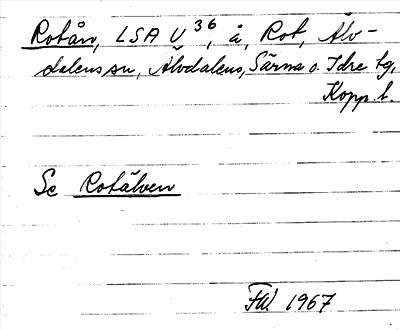 Rotån, LSA U 36, å, Rot, Älv-
dalens sn, Älvdalens, Särna o. Idre tg,
Kopp. l.
Se Rotälven
FW. 1967